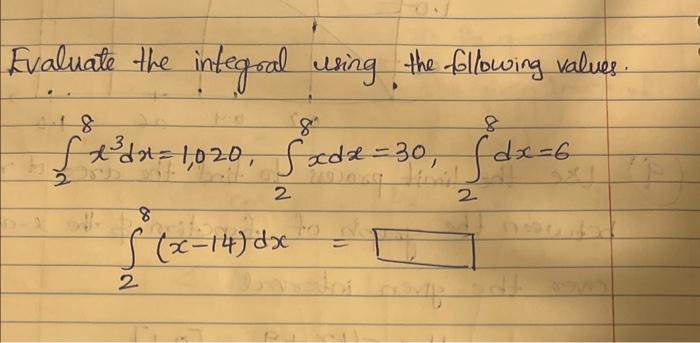 Evaluate the integral using the following values.
∫₂⁸ x³dx = 1,020, ∫₂⁸ xdx = 30, ∫₂⁸ dx = 6
∫₂⁸ (x-14) dx =